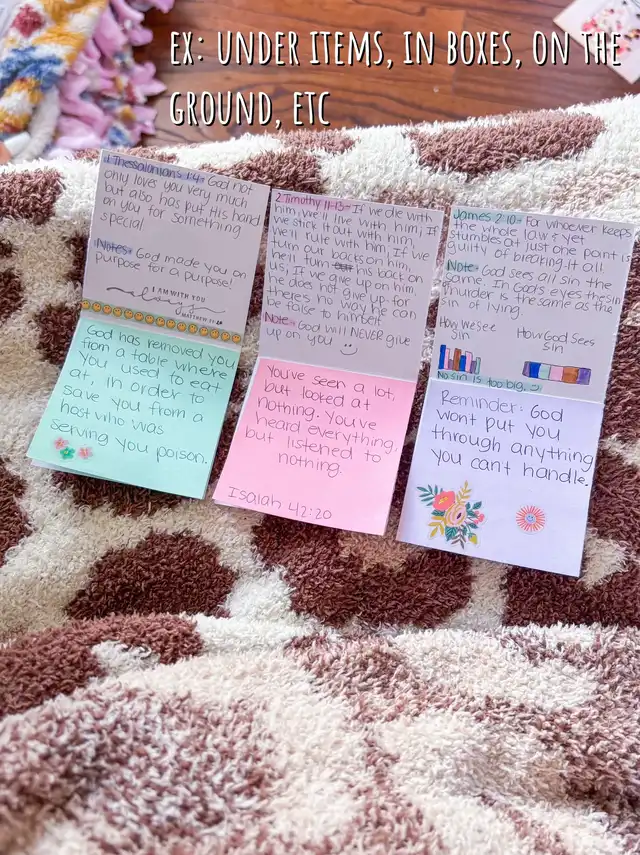 EX: UNDER ITEMS, IN BOXES, ON THE
GROUND, ETC
1 Thessalonians 1:4- God not
only loves you very much
but also has put His hand
on you for something
special
Notes: God made you on
purpose for a purpose!
I AM WITH YOU
always
MATTHEW
God has removed you
from a table where
you used to eat
at, in order to
save you from a
host who was
serving you poison.
2 Timothy 11-13- If we die with
him, we'll live with him, If
we stick it out with him,
we'll rule with him; If we
turn our backs on him,
he'll turn his back on
us; If we give up on him,
he does not give up- for
theres no way he can
be false to himself.
Note:- God will NEVER give
up on you
You've seen a lot,
but looked at
nothing. You've
heard everything,
but listened to
nothing.
Isaiah 42:20
James 2:10- For whoever keeps
the whole law & yet
stumbles at just one point is
guilty of breaking it all.
Note: God sees all sin the
same. In Gods eyes the sin
of murder is the same as the
sin of lying.
How We See
Sin
How God Sees
Sin
No sin is too big.
Reminder: God
wont put you
through anything
you cant handle.